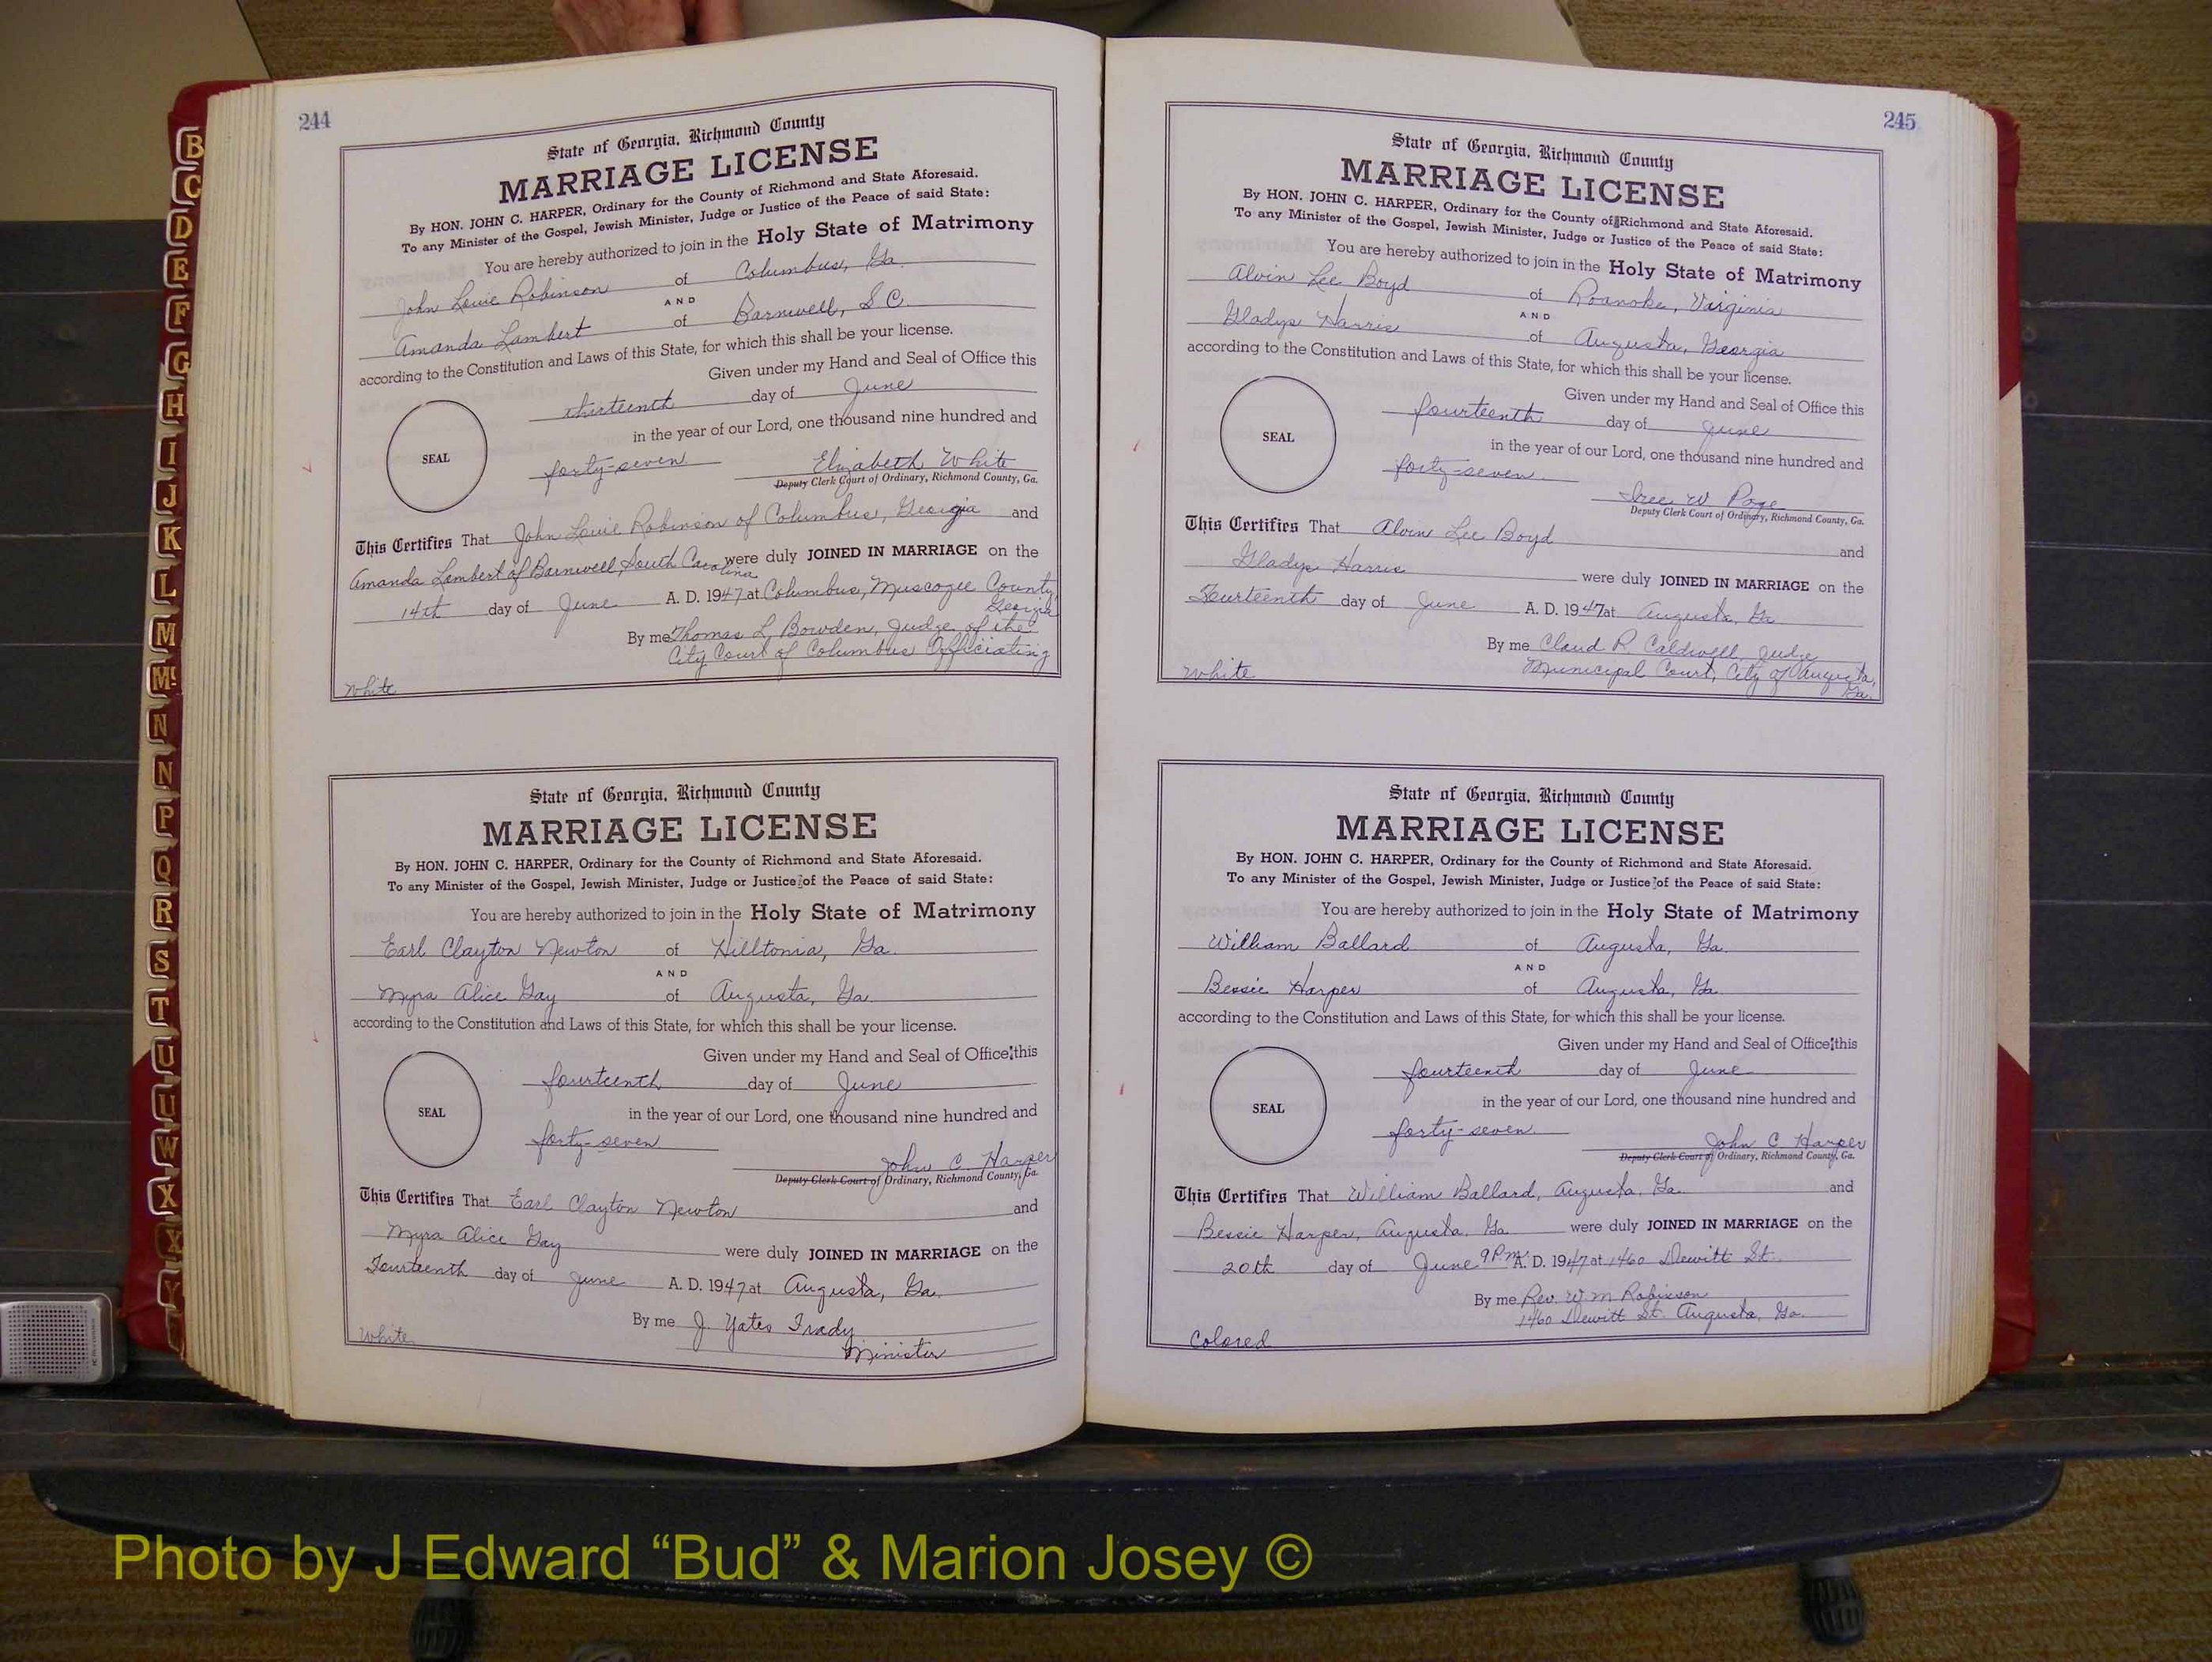 244
State of Georgia, Richmond County
MARRIAGE LICENSE
By HON. JOHN C. HARPER, Ordinary for the County of Richmond and State Aforesaid.
To any Minister of the Gospel, Jewish Minister, Judge or Justice of the Peace of said State:
You are hereby authorized to join in the Holy State of Matrimony
John Louie Robinson of Columbus, Ga.
AND
Amanda Lambert of Barnwell, S C.
according to the Constitution and Laws of this State, for which this shall be your license.
Given under my Hand and Seal of Office this
thirteenth day of June
in the year of our Lord, one thousand nine hundred and
SEAL
forty-seven Elizabeth White
Deputy Clerk Court of Ordinary, Richmond County, Ga.
This Certifies That John Louie Robinson of Columbus, Georgia and
Amanda Lambert of Barnwell, South Carolina were duly JOINED IN MARRIAGE on the
14th day of June A. D. 1947 at Columbus, Muscogee County,
Georgia
By me Thomas L. Bowden, Judge of the
City Court of Columbus Officiating
White
State of Georgia, Richmond County
MARRIAGE LICENSE
By HON. JOHN C. HARPER, Ordinary for the County of Richmond and State Aforesaid.
To any Minister of the Gospel, Jewish Minister, Judge or Justice of the Peace of said State:
You are hereby authorized to join in the Holy State of Matrimony
Earl Clayton Newton of Hilltonia, Ga.
AND
Myra Alice Gay of Augusta, Ga.
according to the Constitution and Laws of this State, for which this shall be your license.
Given under my Hand and Seal of Office this
fourteenth day of June
SEAL
in the year of our Lord, one thousand nine hundred and
forty-seven
John C. Harper
Deputy Clerk Court of Ordinary, Richmond County, Ga.
This Certifies That Earl Clayton Newton and
Myra Alice Gay were duly JOINED IN MARRIAGE on the
Fourteenth day of June A. D. 1947 at Augusta, Ga.
By me J. Yates
Minister
White
245
State of Georgia, Richmond County
MARRIAGE LICENSE
By HON. JOHN C. HARPER, Ordinary for the County of Richmond and State Aforesaid.
To any Minister of the Gospel, Jewish Minister, Judge or Justice of the Peace of said State:
You are hereby authorized to join in the Holy State of Matrimony
Alvin Lee Boyd of Roanoke, Virginia
AND
Gladys Harris of Augusta, Georgia
according to the Constitution and Laws of this State, for which this shall be your license.
Given under my Hand and Seal of Office this
fourteenth day of June
SEAL
in the year of our Lord, one thousand nine hundred and
forty-seven
W
Deputy Clerk Court of Ordinary, Richmond County, Ga.
This Certifies That Alvin Lee Boyd and
Gladys Harris were duly JOINED IN MARRIAGE on the
Fourteenth day of June A. D. 1947 at Augusta, Ga.
By me Claud R. Caldwell, Judge
Municipal Court, City of Augusta,
Ga.
White
State of Georgia, Richmond County
MARRIAGE LICENSE
By HON. JOHN C. HARPER, Ordinary for the County of Richmond and State Aforesaid.
To any Minister of the Gospel, Jewish Minister, Judge or Justice of the Peace of said State:
You are hereby authorized to join in the Holy State of Matrimony
William Ballard of Augusta, Ga.
AND
Bessie Harper of Augusta, Ga.
according to the Constitution and Laws of this State, for which this shall be your license.
Given under my Hand and Seal of Office this
fourteenth day of June
SEAL
in the year of our Lord, one thousand nine hundred and
forty-seven
John C. Harper
Deputy Clerk Court of Ordinary, Richmond County, Ga.
This Certifies That William Ballard, Augusta, Ga. and
Bessie Harper, Augusta, Ga. were duly JOINED IN MARRIAGE on the
20th day of June 9 P.m. A. D. 1947 at 1460 Dewitt St.
By me Rev. W. M Robinson
1460 Dewitt St. Augusta, Ga.
Colored
B
C
D
E
F
G
H
I
J
K
L
M
Mc
N
N
P
Q
R
S
T
U
U
W
X
X
Y
Photo by J Edward “Bud” & Marion Josey ©